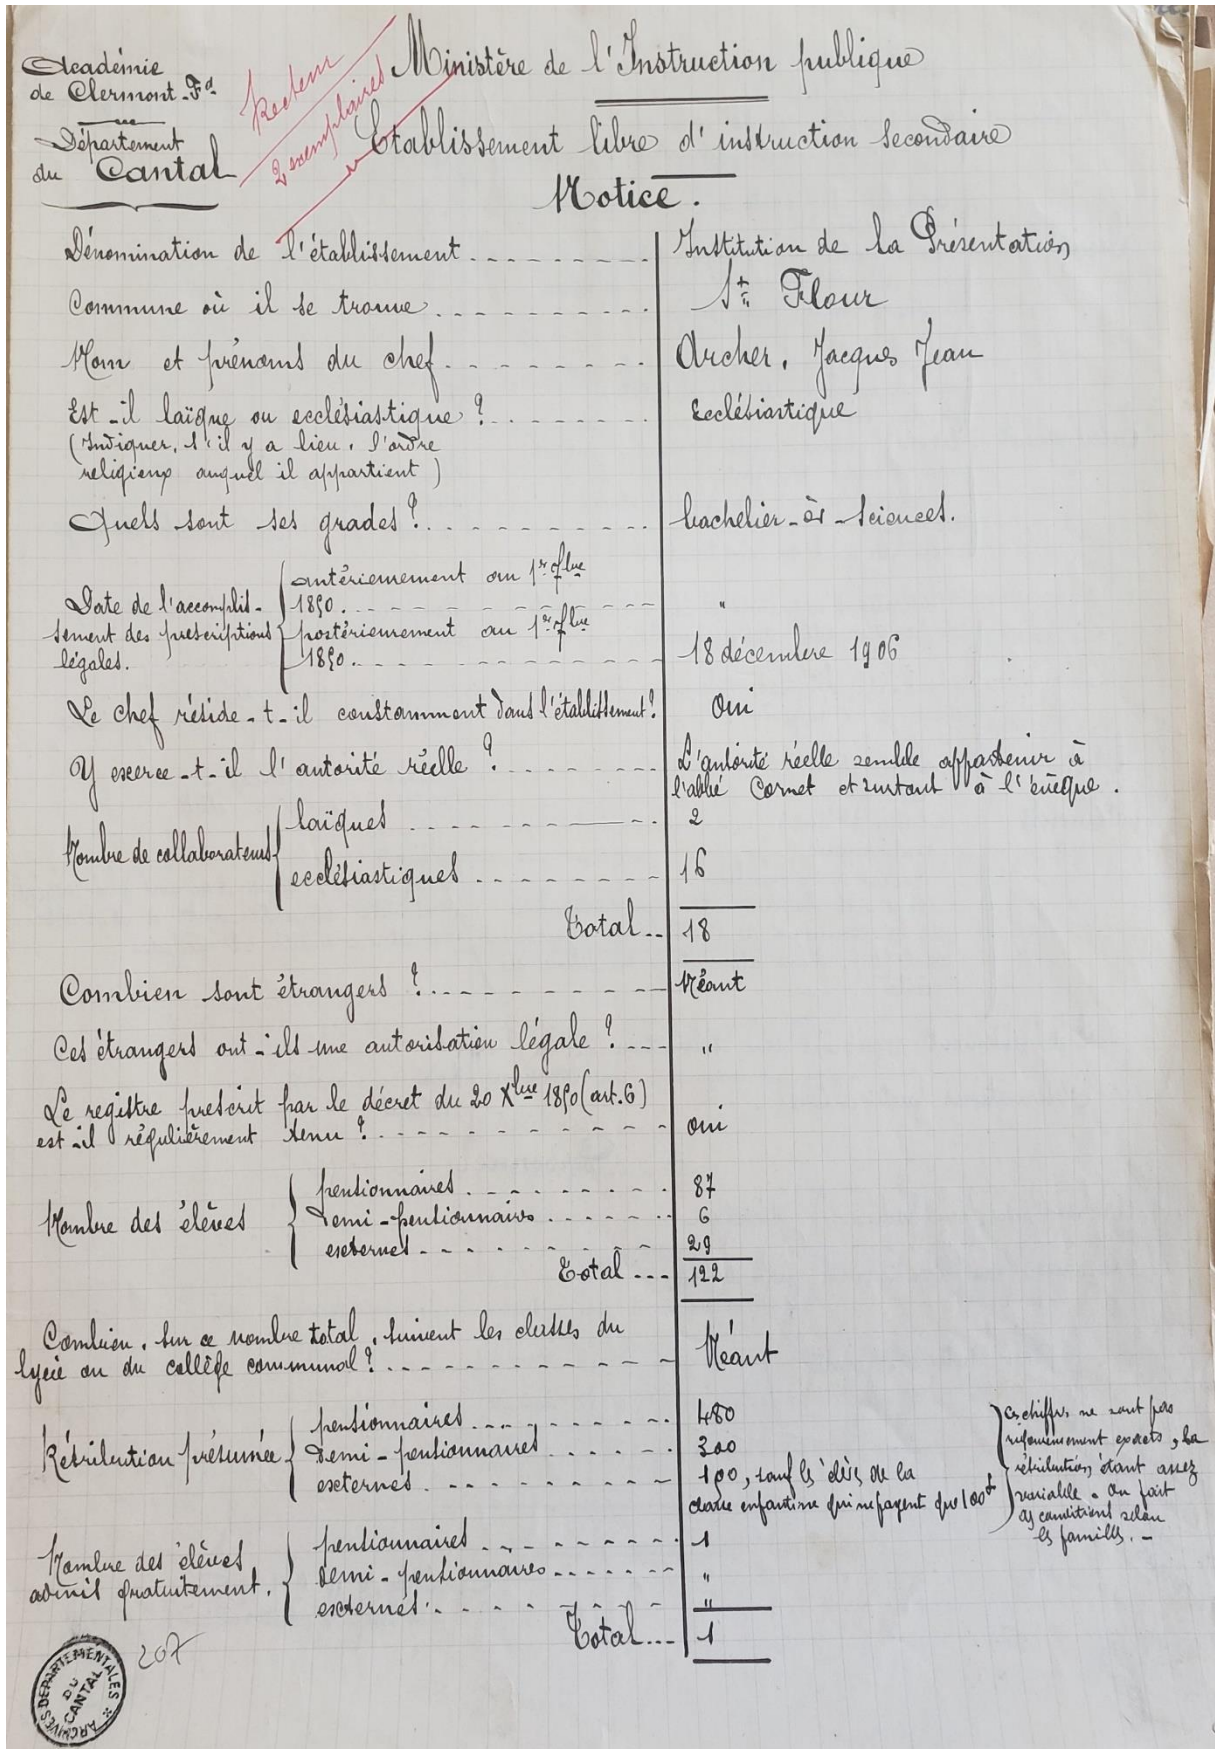 Académie
de Clermont-Fd
Département
du Cantal
Recteur
2 exemplaires
Ministère de l'Instruction publique
Etablissement libre d'instruction secondaire
Notice.
Dénomination de l'établissement Institution de la Présentation
Commune où il se trouve St Flour
Nom et prénoms du chef Archer, Jacques Jean
Est-il laïque ou ecclésiastique ? Ecclésiastique
(Indiquer, s'il y a lieu, l'ordre
religieux auquel il appartient)
Quels sont ses grades ? bachelier-ès-sciences.
Date de l'accomplis-
sement des prescriptions
légales.
antérieurement au 1er 7bre
1850. "
postérieurement au 1er 7bre
1850. 18 décembre 1906
Le chef réside-t-il constamment dans l'établissement ? Oui
Y exerce-t-il l'autorité réelle ? L'autorité réelle semble appartenir à
l'abbé Cornet et surtout à l'évêque.
Nombre de collaborateurs
laïques 2
ecclésiastiques 16
Total 18
Combien sont étrangers ? Néant
Ces étrangers ont-ils une autorisation légale ? "
Le registre prescrit par le décret du 20 Xbre 1850 (art. 6)
est-il régulièrement tenu ? oui
Nombre des élèves
pensionnaires 87
demi-pensionnaires 6
externes 29
Total 122
Combien, sur ce nombre total, suivent les classes du
lycée ou du collège communal ? Néant
Rétribution présumée
pensionnaires 480
demi-pensionnaires 300
externes sauf les élèves de la
classe enfantine qui ne payent que 100f
Ces chiffres ne sont pas
rigoureusement exacts, la
rétribution étant assez
variable. On fait
des conditions selon
les familles. -
Nombre des élèves
admis gratuitement.
pensionnaires 1
demi-pensionnaires "
externes "
Total 1
207
ARCHIVES DEPARTEMENTALES
DU
CANTAL